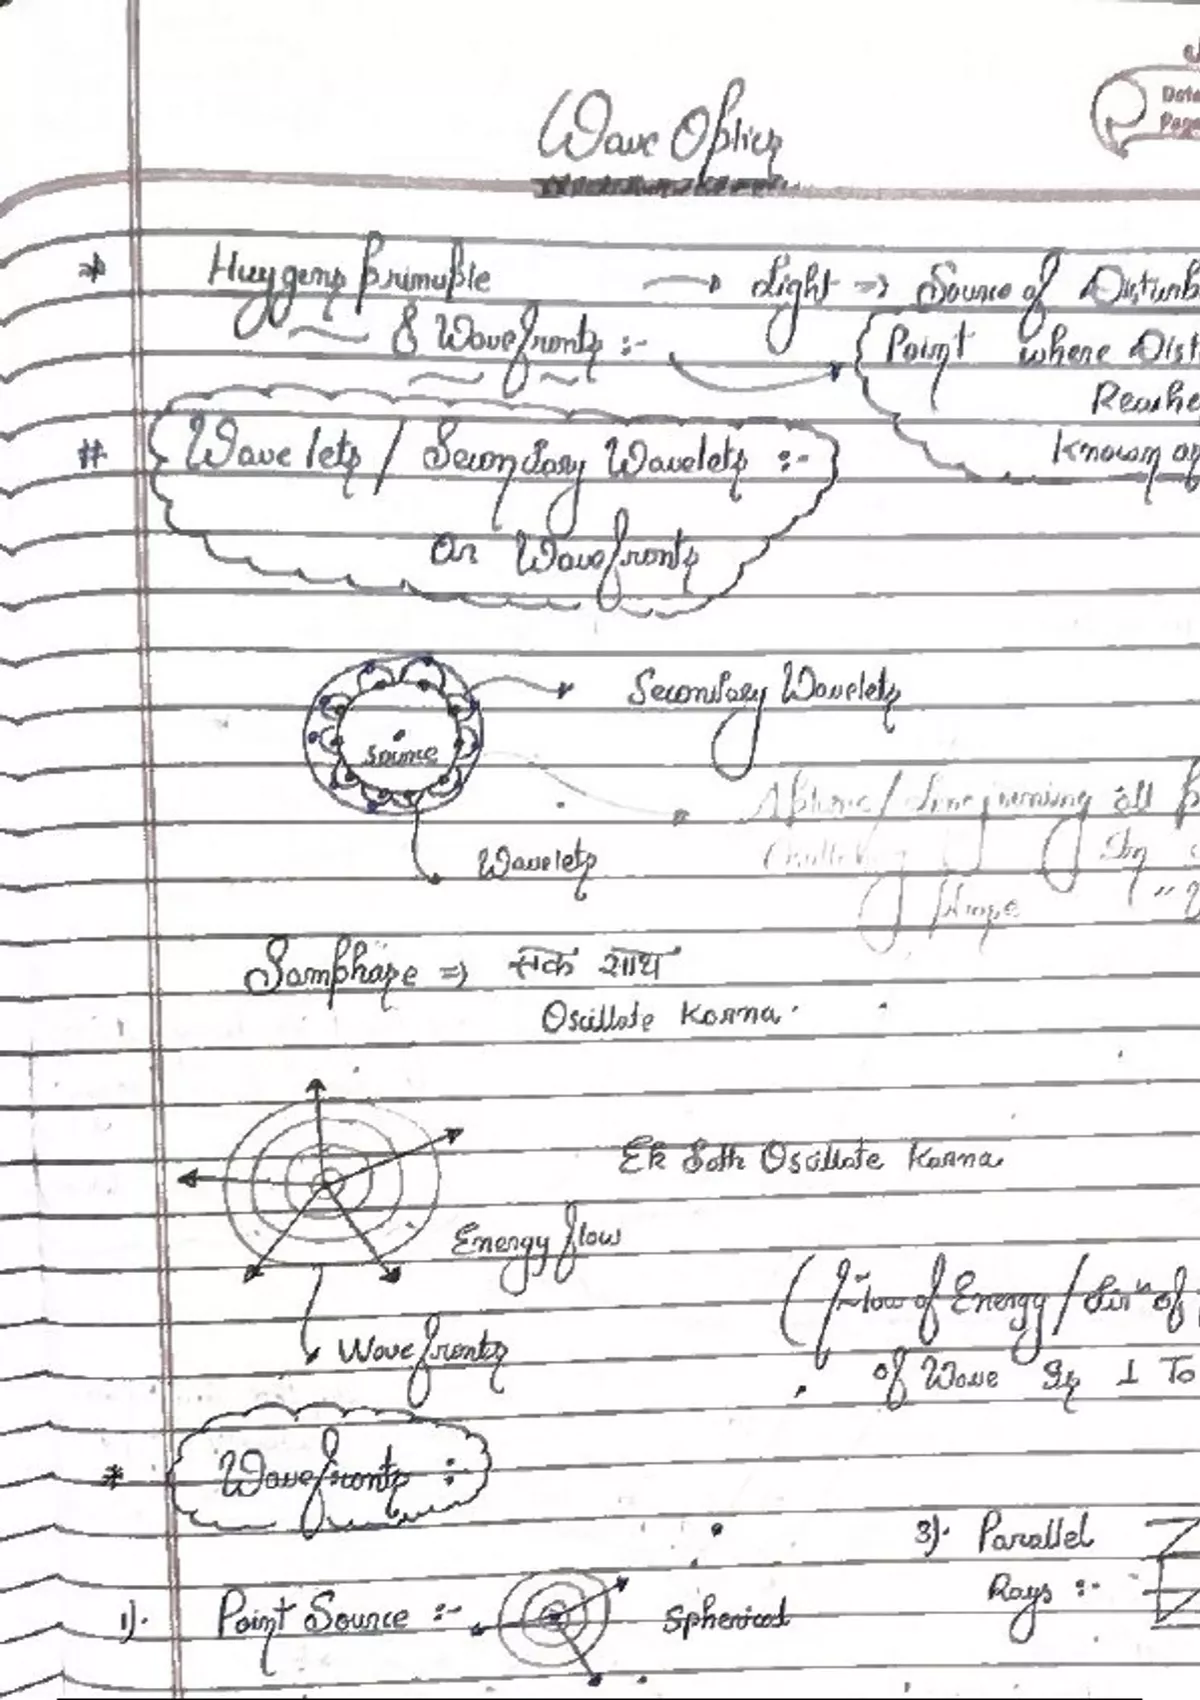 Wave Optics
Date
Page
* Huygens principle → Light => Source of Disturb
& Wavefronts :- → Point where Dist
Reache
Known as
# Wavelets / Secondary Wavelets :-
Or Wavefronts
Source
Secondary Wavelets
/ Line joining all
Wavelets
Samphase => एक साथ
Oscillate Karna.
Ek Sath Oscillate Karna
Energy flow
(Flow of Energy / Dirⁿ of
Wavefronts
of Wave Is ⊥ To
* Wavefronts :
3). Parallel
Rays :-
1). Point Source :- Spherical